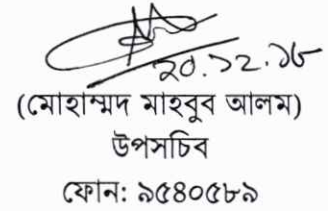 ২০.১২.১৮
(মোহাম্মদ মাহবুব আলম)
উপসচিব
ফোন: ৯৫৪০৫৮৯